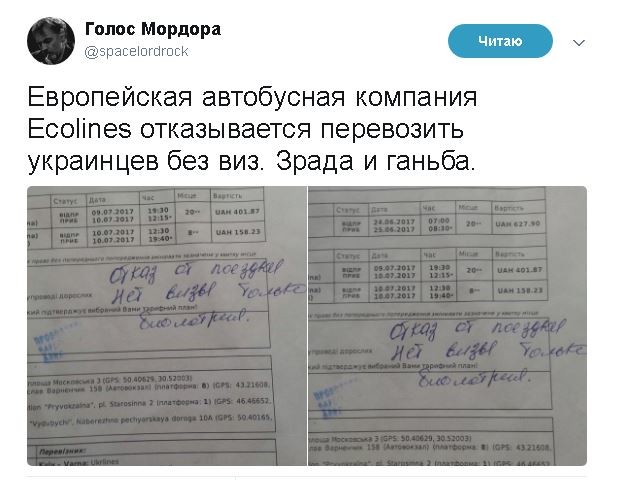 Голос Мордора
@spacelordrock
Читаю
Европейская автобусная компания
Ecolines отказывается перевозить
украинцев без виз. Зрада и ганьба.
Статус Дата Час Місце Вартість
ВІДПР 09.07.2017 19:30 20** UAH 401.87
ПРИБ 10.07.2017 12:15*
ВІДПР 10.07.2017 12:30 8** UAH 158.23
ПРИБ 10.07.2017 19:40*
право без попереднього попередження змінювати зазначене у квитку місце
Отказ от поездки
Нет визы только
упроводі дорослих
кий підтверджує вибраний Вами тарифний план!
биометрия.
площа Московська 3 (GPS: 50.40629, 30.52003)
слав Варненчик 158 (Автовокзал) (платформа: 8) (GPS: 43.21608,
tion "Pryvokzalna", pl. Starosinna 2 (платформа: 1) (GPS: 46.46652,
"Vydubychi", Naberezhno pecharskaya doroga 10A (GPS: 50.40165,
Контакти:
Kyiv - Varna: Ukrlines
Статус Дата Час Місце Вартість
ВІДПР 24.06.2017 07:00 20** UAH 627.90
ПРИБ 25.06.2017 08:30*
ВІДПР 09.07.2017 19:30 20** UAH 401.87
ПРИБ 10.07.2017 12:15*
ВІДПР 10.07.2017 12:30 8** UAH 158.23
ПРИБ 10.07.2017 19:40*
право без попереднього попередження змінювати зазначене у квитку місце
Отказ от поездки
Нет визы только
упроводі дорослих
кий підтверджує вибраний Вами тарифний план!
биометрия.
площа Московська 3 (GPS: 50.40629, 30.52003)
слав Варненчик 158 (Автовокзал) (платформа: 8) (GPS: 43.21608,
tion "Pryvokzalna", pl. Starosinna 2 (платформа: 1) (GPS: 46.46652